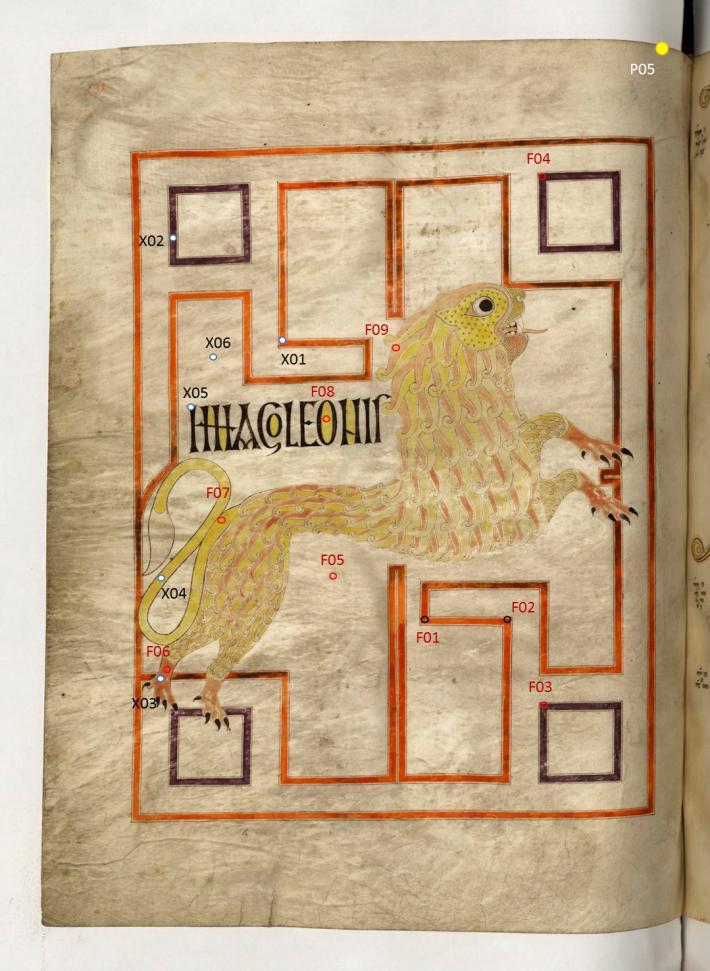 P05
F04
X02
F09
X06
X01
F08
X05
IMAGO LEONIS
F07
F05
X04
F02
F01
F06
F03
X03